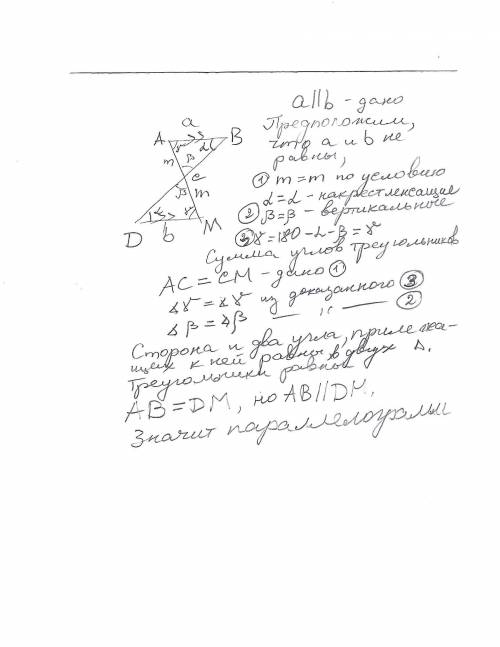 a
A
B
γ
α
m
β
c
β
m
α
γ
D
b
M
a||b - дано
Предположим,
что a и b не
равны,
① m = m по условию
② α = α - накрестлежащие
β = β - вертикальные
③ γ = 180 - α - β = γ
Сумма углов треугольников
AC = CM - дано ①
∡γ = ∡γ из доказанного ③
∡β = ∡β — ıı — ②
Сторона и два угла, прилежа-
щих к ней равны в двух Δ.
Треугольники равны
AB = DM, но AB || DM,
Значит параллелограмм